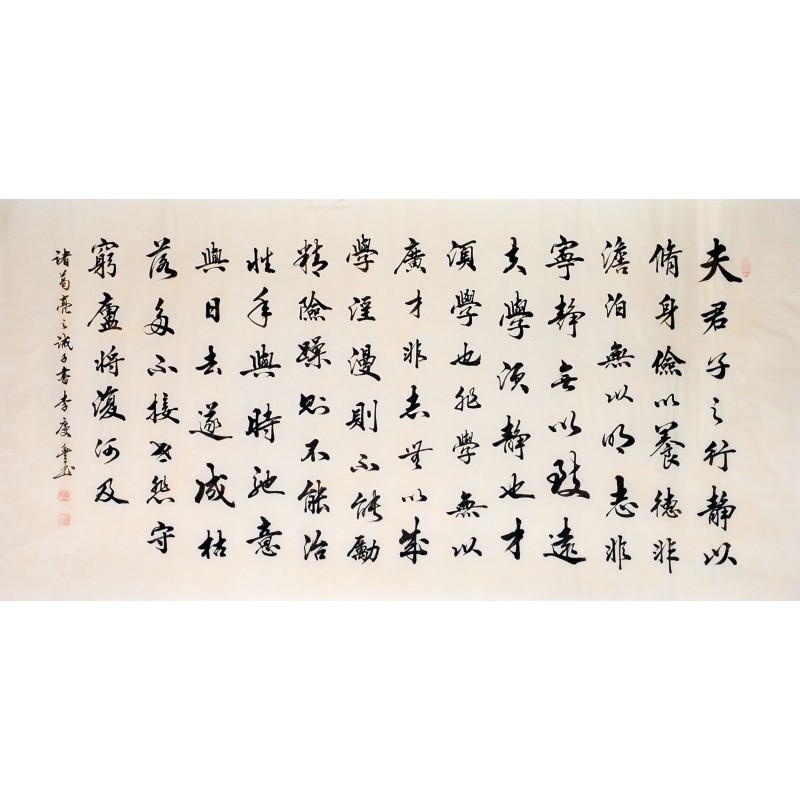 夫君子之行靜以
脩身儉以養德非
澹泊無以明志非
寧靜無以致遠
夫學須靜也才
須學也非學無以
廣才非志無以成
學淫漫則不能勵
精險躁則不能治
性年與時馳意
與日去遂成枯
落多不接世悲守
窮廬將復何及
諸葛亮之誡子書李慶